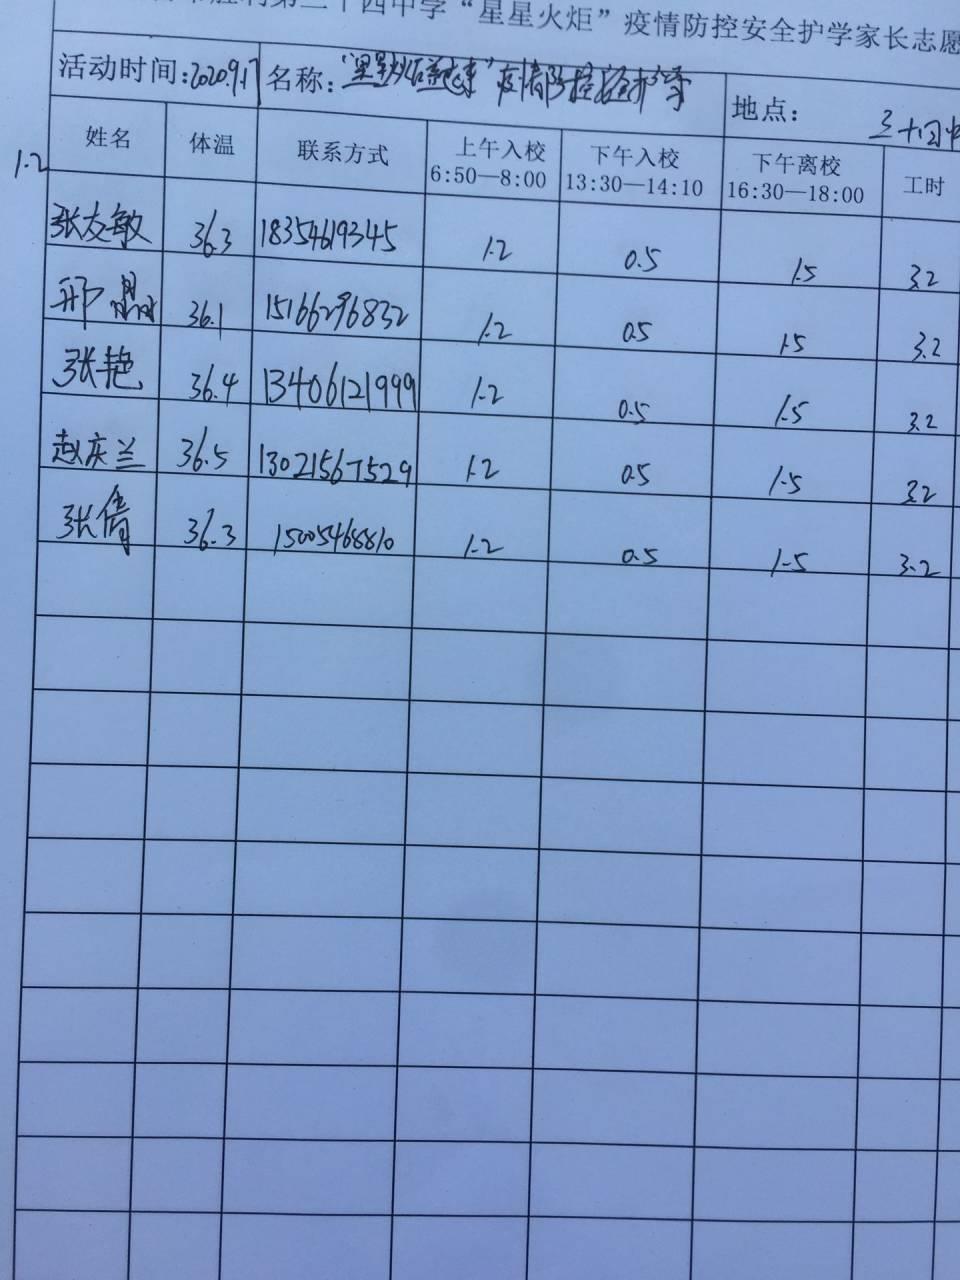 第三十四中学“星星火炬”疫情防控安全护学家长志愿
活动时间:2020.9.17 名称: 疫情防控安全护学 地点: 三十四中
姓名 体温 联系方式 上午入校 6:50—8:00 下午入校 13:30—14:10 下午离校 16:30—18:00 工时
1.2
张友敏 36.3 18354619345 1.2 0.5 1.5 3.2
邢晶 36.1 15166296832 1.2 0.5 1.5 3.2
张艳 36.4 13406121999 1.2 0.5 1.5 3.2
赵庆兰 36.5 13021567529 1.2 0.5 1.5 3.2
张倩 36.3 15005468810 1.2 0.5 1.5 3.2